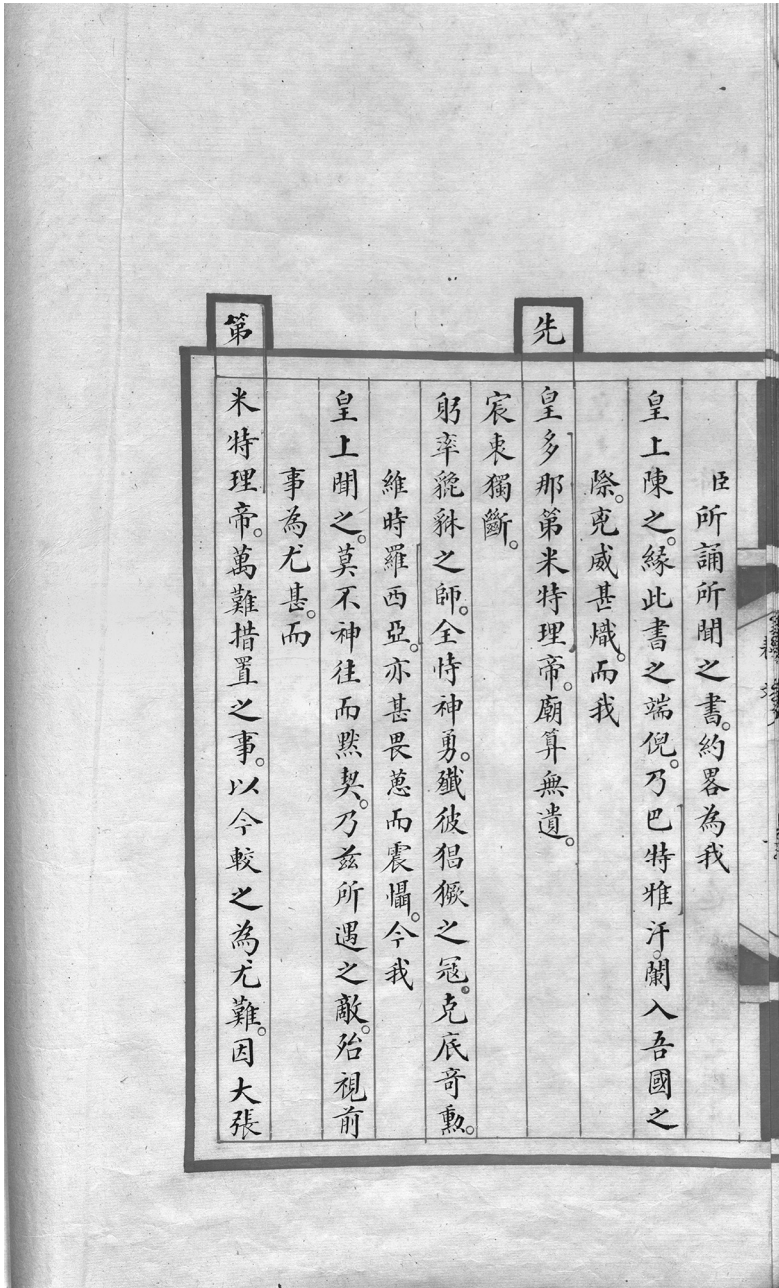 臣所誦所聞之書。約畧為我
皇上陳之。緣此書之端倪。乃巴特雅汗。闌入吾國之
際。兇威甚熾。而我
先皇多那第米特理帝。廟算無遺。
宸衷獨斷。
躬率貔貅之師。全恃神勇。殲彼猖獗之冦。克底竒勳。
維時羅西亞。亦甚畏葸而震懾。今我
皇上聞之。莫不神往而默契。乃兹所遇之敵。殆視前
事為尤甚。而
第米特理帝。萬難措置之事。以今較之為尤難。因大張